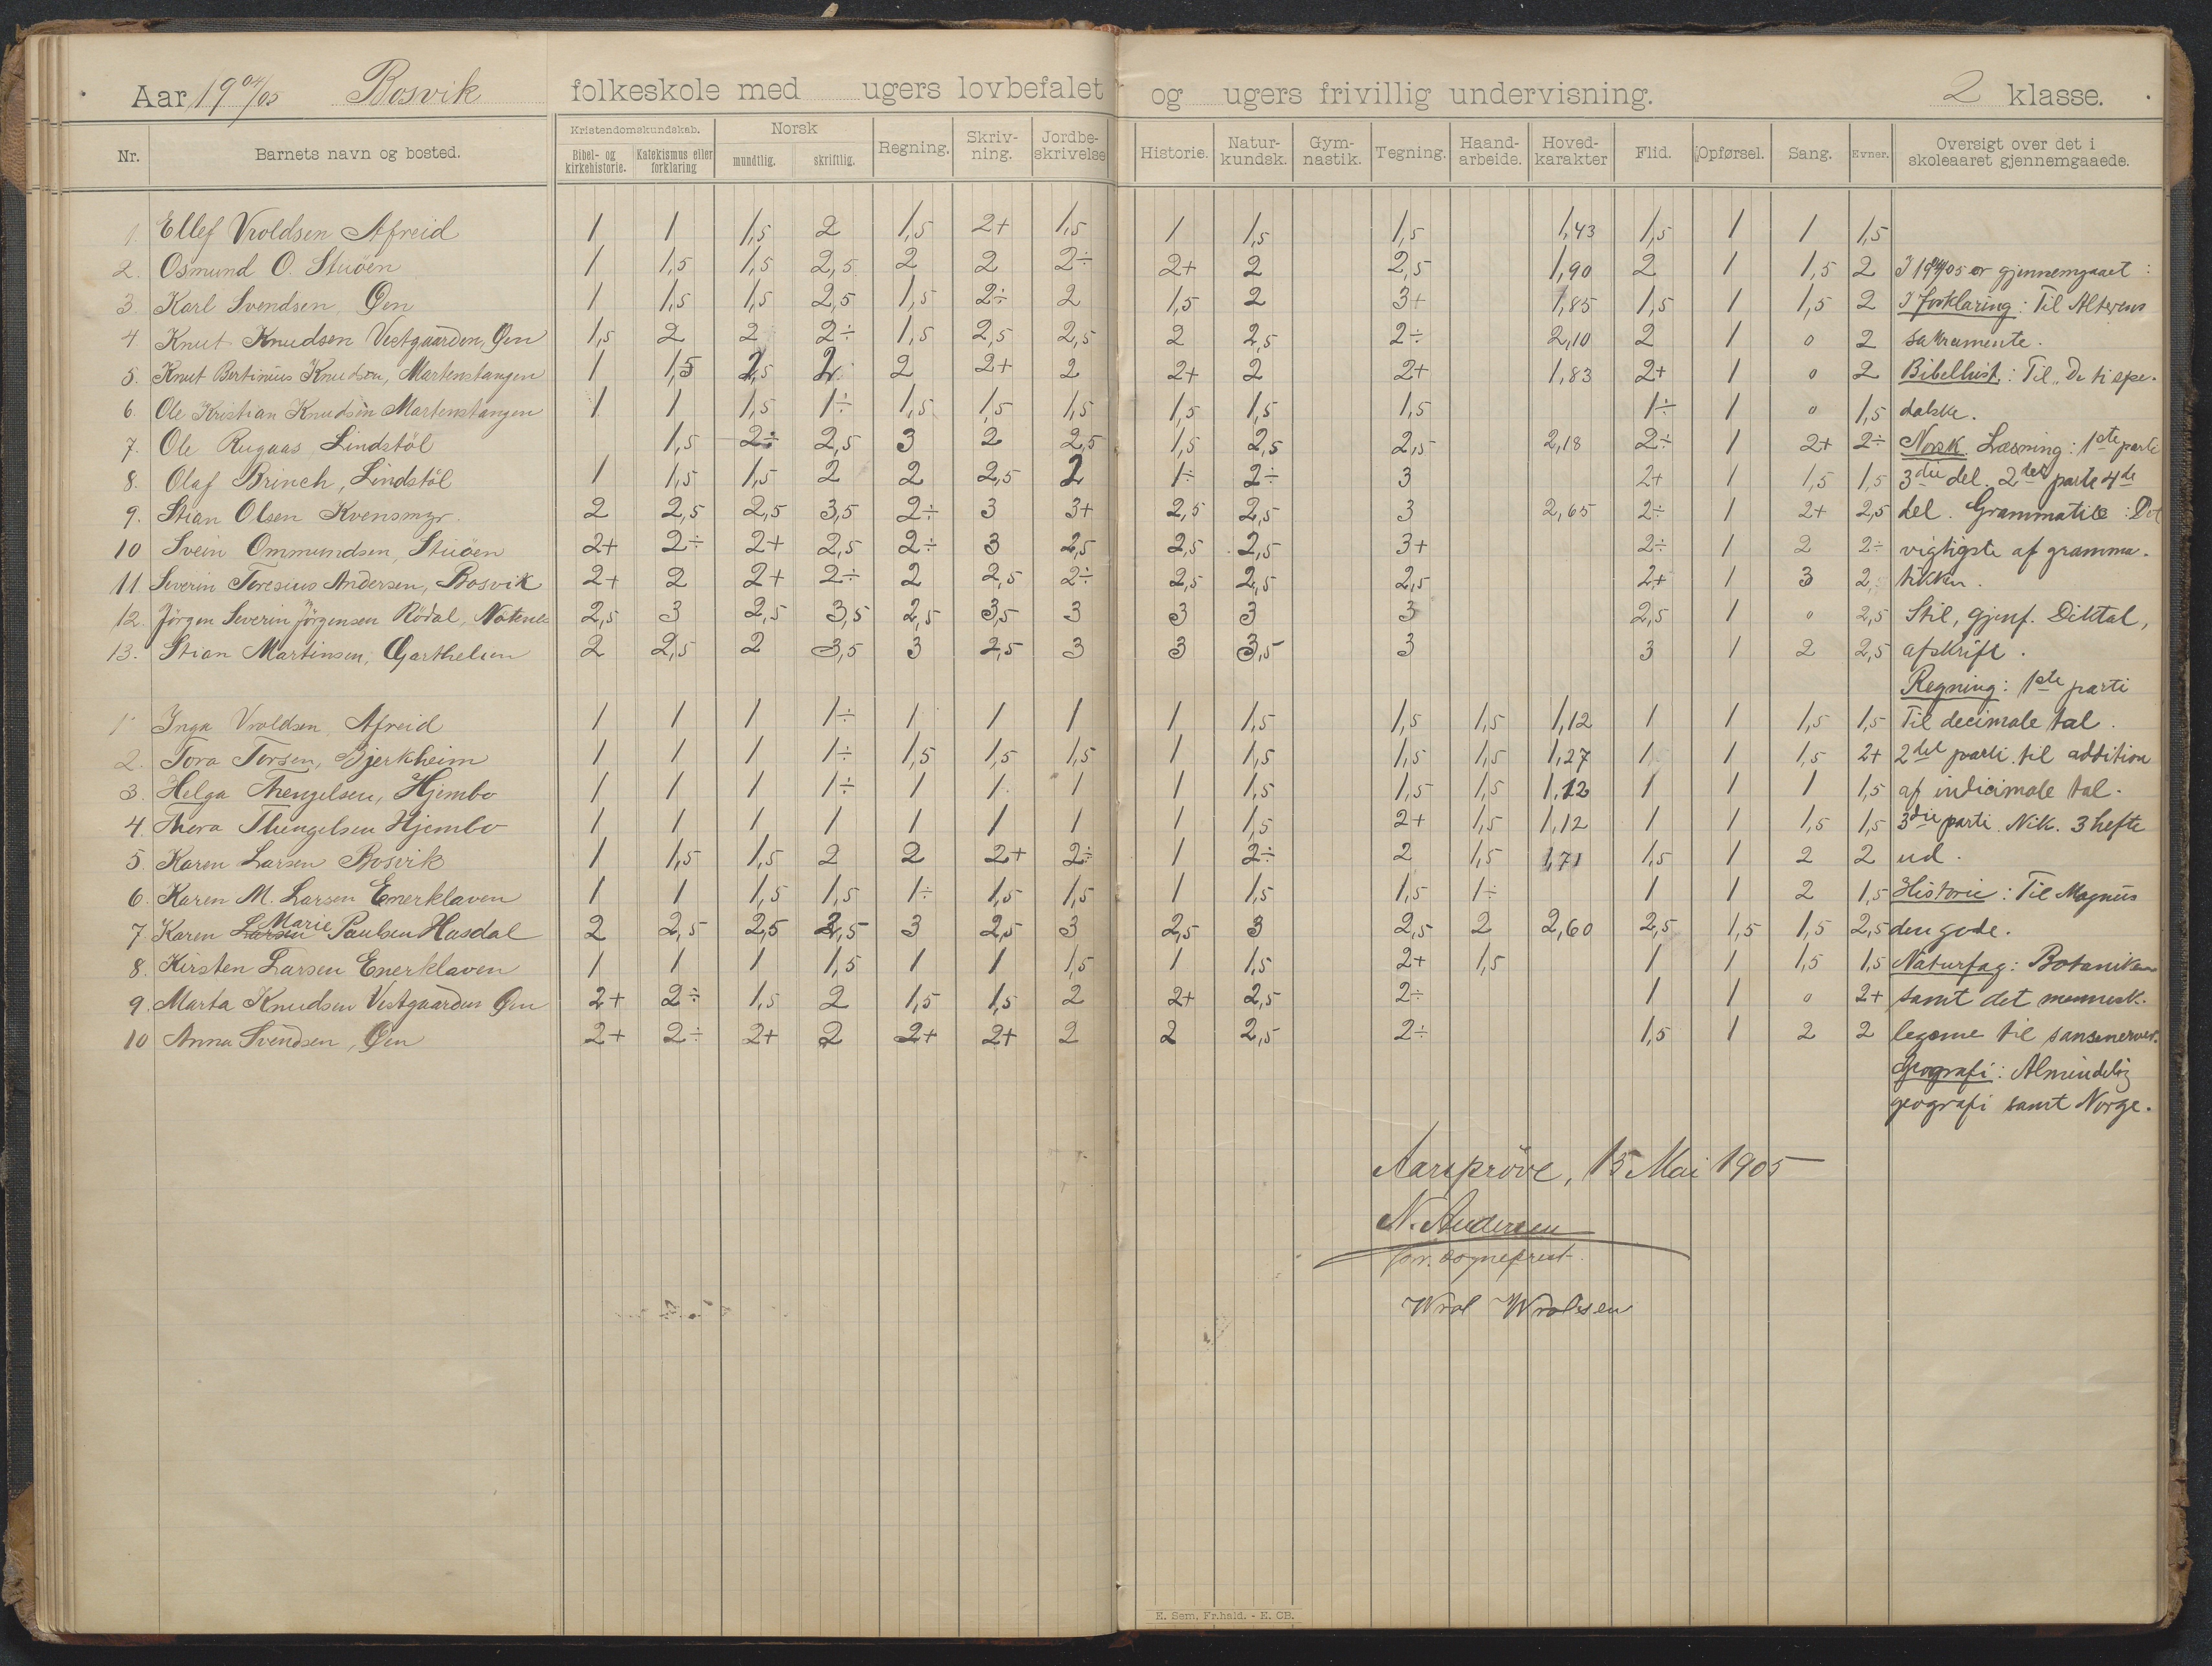 Aar 19 04/05 Bosvik folkeskole med ugers lovbefalet og ugers frivillig undervisning. 2 klasse.
Nr. Barnets navn og bosted. Kristendomskundskab. Bibel- og kirkehistorie. Katekismus eller forklaring Norsk mundtlig. skriftlig. Regning. Skriv-ning. Jordbe-skrivelse Historie. Natur-kundsk. Gym-nastik. Tegning. Haand-arbeide. Hoved-karakter Flid. Opførsel. Sang. Evner. Oversigt over det i skoleaaret gjennemgaaede.
1. Ellef Vroldsen Afreid 1 1 1,5 2 1,5 2+ 1,5 1 1,5 1,5 1,43 1,5 1 1 1,5
2. Osmund O. Stuöen 1 1,5 1,5 2,5 2 2 2÷ 2+ 2 2,5 1,90 2 1 1,5 2 I 1904/05 er gjennemgaaet :
3 Karl Svendsen, Øen 1 1,5 1,5 2,5 1,5 2÷ 2 1,5 2 3+ 1,85 1,5 1 1,5 2 I Forklaring : Til Alterens
4 Knut Knudsen Vestgaarden, Øen 1,5 2 2 2÷ 1,5 2,5 2,5 2 2,5 2÷ 2,10 2 1 0 2 sakramente.
5. Knut Bertinius Knudsen, Martenstangen 1 1,5 1,5 2 2 2+ 2 2+ 2 2+ 1,83 2+ 1 0 2 Bibelhist. : Til "De ti spe-
6. Ole Kristian Knudsen Martenstangen 1 1 1,5 1÷ 1,5 1,5 1,5 1,5 1,5 1,5 1÷ 1 0 1,5 dalske.
7. Ole Rugaas Lindstöl 1,5 2÷ 2,5 3 2 2,5 1,5 2,5 2,5 2,18 2÷ 1 2+ 2÷ Norsk. Læsning : 1ste parti
8. Olaf Brinch, Lindstöl 1 1,5 1,5 2 2 2,5 2 1÷ 2÷ 3 2+ 1 1,5 1,5 3die del. 2det parti 4de
9. Stian Olsen Kvensmyr. 2 2,5 2,5 3,5 2÷ 3 3+ 2,5 2,5 3 2,65 2÷ 1 2+ 2,5 del. Grammatik : Det
10 Svein Ommundsen, Stuöen 2+ 2÷ 2+ 2,5 2÷ 3 2,5 2,5 2,5 3+ 2÷ 1 2 2÷ vigtigste af gramma-
11 Severin Toresius Andersen, Bosvik 2+ 2 2+ 2÷ 2 2,5 2÷ 2,5 2,5 2,5 2+ 1 3 2 tikken.
12. Jörgen Severin Jörgensen Rödal, 2,5 3 2,5 3,5 2,5 3,5 3 3 3 3 2,5 1 0 2,5 Stil, gjenf. Diktat,
13. Stian Martinsen, Garthelien 2 2,5 2 3,5 3 2,5 3 3 3,5 3 3 1 2 2,5 afskrift.
Regning : 1ste parti
1 Inga Vroldsen, Afreid 1 1 1 1÷ 1 1 1 1 1,5 1,5 1,5 1,12 1 1 1,5 1,5 Til decimale tal.
2. Tora Torsen, Bjerkheim 1 1 1 1÷ 1,5 1,5 1,5 1 1,5 1,5 1,5 1,27 1 1 1,5 2+ 2det parti til addition
3. Helga Thengelsen, Hjembo 1 1 1 1÷ 1 1 1 1 1,5 1,5 1,5 1,12 1 1 1 1,5 af indicimale tal.
4. Thora Thengelsen Hjembo 1 1 1 1 1 1 1 1 1,5 2+ 1,5 1,12 1 1 1,5 1,5 3die parti. Nik. 3 hefte
5. Karen Larsen Bosvik 1 1,5 1,5 2 2 2+ 2÷ 1 2÷ 2 1,5 1,71 1,5 1 2 2 ud.
6. Karen M. Larsen Enerklaven 1 1 1,5 1,5 1÷ 1,5 1,5 1 1,5 1,5 1÷ 1 1 2 1,5 Historie : Til Magnus
7 Karen Larsen Marie Paulsen Hasdal 2 2,5 2,5 2,5 3 2,5 3 2,5 3 2,5 2 2,60 2,5 1,5 1,5 2,5 den gode.
8. Kirsten Larsen Enerklaven 1 1 1 1,5 1 1 1,5 1 1,5 2+ 1,5 1 1 1,5 1,5 Naturfag : Botaniken
9. Marta Knudsen Vestgaarden Øen 2+ 2÷ 1,5 2 1,5 1,5 2 2+ 2,5 2÷ 1 1 0 2+ samt det mennesk.
10 Anna Svendsen, Øen 2+ 2÷ 2+ 2 2+ 2+ 2 2 2,5 2÷ 1,5 1 2 2 legeme til sansenerver.
Geografi : Almindelig
geografi samt Norge.
Aarsprøve, 15 Mai 1905
N. Andersen
sogneprest.
Wrol Wrolsen
E. Sem, Fr.hald. - E. CB.